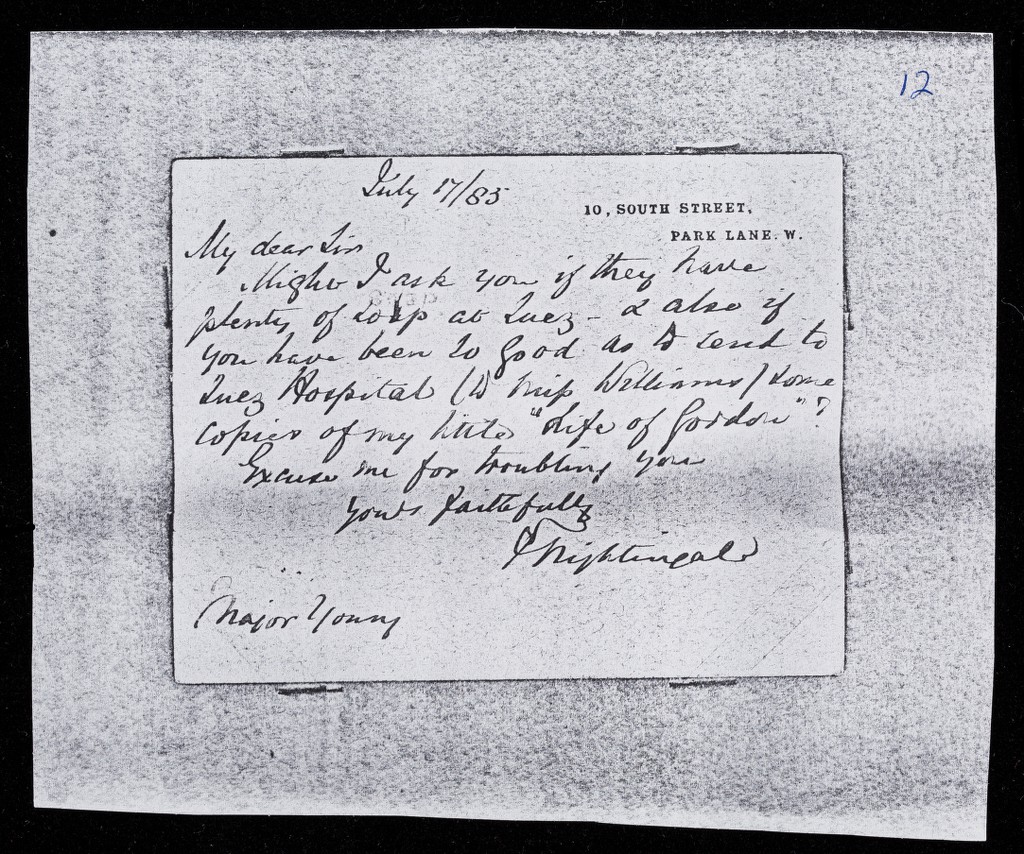 12
July 17/85
10, SOUTH STREET,
PARK LANE. W.
My dear Sir
Might I ask you if they have
plenty of soap at Suez - & also if
you have been so good as to send to
Suez Hospital (to Miss Williams) some
copies of my little "Life of Gordon"?
Excuse me for troubling you
yours faithfully
F Nightingale
Major Young